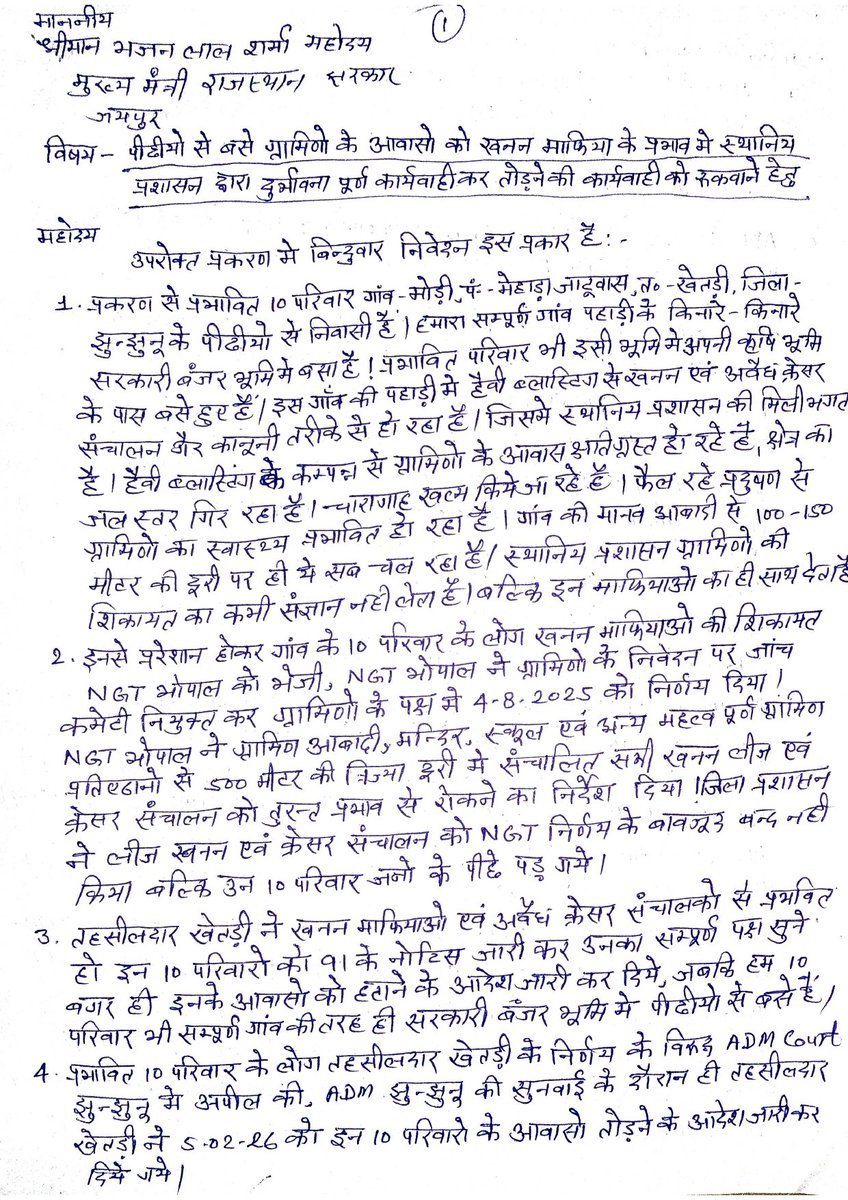 (1)
माननीय
श्रीमान भजन लाल शर्मा महोदय
मुख्य मंत्री राजस्थान सरकार
जयपुर
विषय- पीढीयो से बसे ग्रामिणो के आवासो को खनन माफिया के प्रभाव मे स्थानिय
प्रशासन द्वारा दुर्भावना पूर्ण कार्यवाही कर तोड़ने की कार्यवाही को रुकवाने हेतु
महोदय
उपरोक्त प्रकरण मे बिन्दुवार निवेदन इस प्रकार है:-
1. प्रकरण से प्रभावित 10 परिवार गांव-मोड़ी, पं- मेहाड़ा जाटूवास, त०-खेतड़ी, जिला-
झुन्झुनू के पीढीयो से निवासी है। हमारा सम्पूर्ण गांव पहाड़ी के किनारे-किनारे
सरकारी बंजर भूमि मे बसा है। प्रभावित परिवार भी इसी भूमि मे अपनी कृषि भूमि
के पास बसे हुए है। इस गाँव की पहाड़ी मे हैवी ब्लास्टिंग से खनन एवं अवैध क्रेसर
संचालन गैर कानूनी तरीके से हो रहा है। जिसमे स्थानिय प्रशासन की मिली भगत
है। हैवी ब्लास्टिंग के कम्पन्न से ग्रामिणो के आवास क्षतिग्रस्त हो रहे है, क्षेत्र का
जल स्तर गिर रहा है। चारागाह खत्म किये जा रहे है। फैल रहे प्रदुषण से
ग्रामिणो का स्वास्थ्य प्रभावित हो रहा है। गांव की मानव आबादी से 100-150
मीटर की दूरी पर ही ये सब चल रहा है। स्थानिय प्रशासन ग्रामिणो की
शिकायत का कभी संज्ञान नही लेता है। बल्कि इन माफियाओ का ही साथ देता है
2. इनसे परेशान होकर गांव के 10 परिवार के लोग खनन माफियाओ की शिकायत
NGT भोपाल को भेजी, NGT भोपाल ने ग्रामिणो के निवेदन पर जांच
कमेटी नियुक्त कर ग्रामिणो के पक्ष मे 4-8-2025 को निर्णय दिया।
NGT भोपाल ने ग्रामिण आबादी, मन्दिर, स्कूल एवं अन्य महत्व पूर्ण ग्रामिण
प्रतिष्ठानो से 500 मीटर की त्रिज्या दूरी मे संचालित सभी खनन लीज एवं
क्रेसर संचालन को तुरन्त प्रभाव से रोकने का निर्देश दिया। जिला प्रशासन
ने लीज खनन एवं क्रेसर संचालन को NGT निर्णय के बावजूद बन्द नही
किया बल्कि उन 10 परिवार जनो के पीछे पड़ गये।
3. तहसीलदार खेतड़ी ने खनन माफियाओ एवं अवैध क्रेसर संचालको से प्रभवित
हो इन 10 परिवारो को 91 के नोटिस जारी कर उनका सम्पूर्ण पक्ष सुने
बगर ही इनके आवासो को हटाने के आदेश जारी कर दिये, जबकि हम 10
परिवार भी सम्पूर्ण गांव की तरह ही सरकारी बँजर भूमि मे पीढीयो से बसे है।
4. प्रभावित 10 परिवार के लोग तहसीलदार खेतड़ी के निर्णय के विरुद्ध ADM Court
झुन्झुनू मे अपील की, ADM झुन्झुनू की सुनवाई के दौरान ही तहसीलदार
खेतड़ी ने 5-02-26 को इन 10 परिवारो के आवासो तोड़ने के आदेश जारी कर
दिये गये।